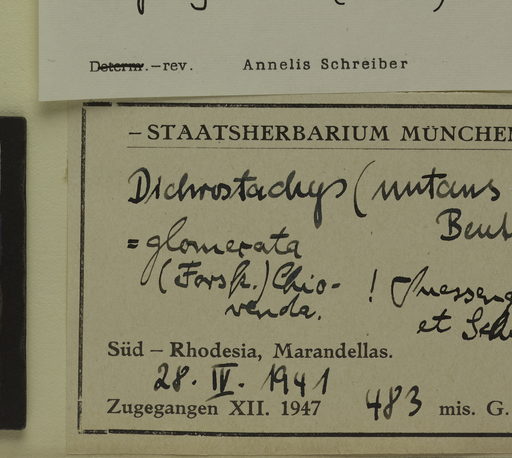 Determ.-rev. Annelis Schreiber
– STAATSHERBARIUM MÜNCHEN
Dichrostachys (nutans
Bent
= glomerata
(Forsk.) Chio-
venda. !
et Sch
Süd – Rhodesia, Marandellas.
28. IV. 1941
Zugegangen XII. 1947 483 mis. G.